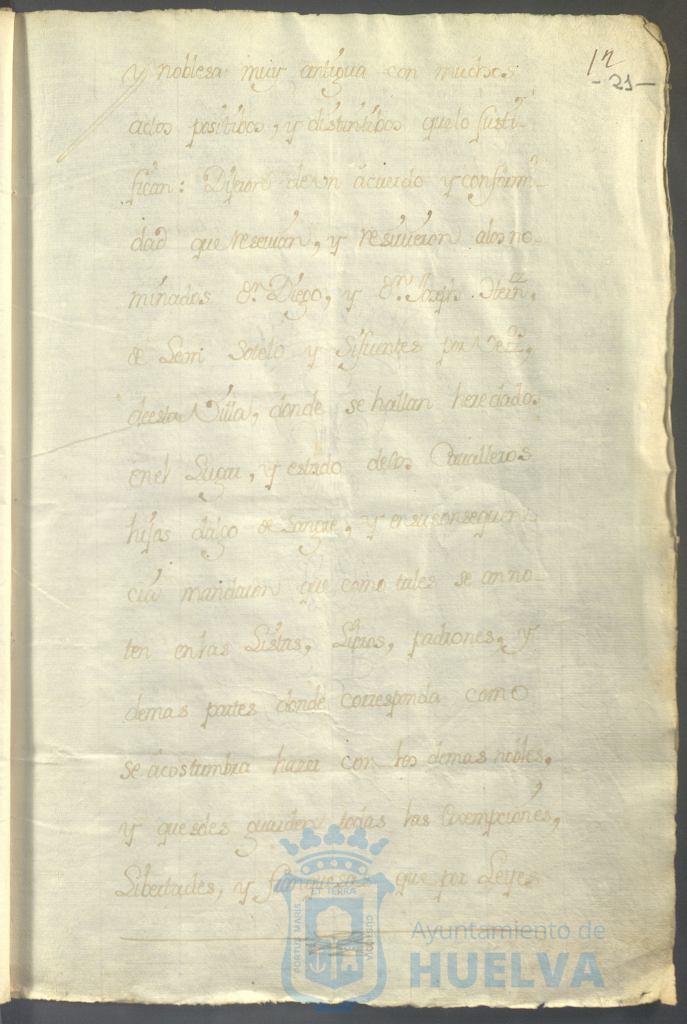 12
- 21 -
y noblesa muy antigua con muchos
actos positibos, y distintibos quelo justi-
fican: Dijeron de vn acuerdo y conform-
dad que resevian, y resivieron alos no-
minados Dn. Diego, y Dn. Joseph
de Sotelo y Sifuentes por
deesta Villa, donde se hallan heredados
enel Lugar, y estado delos Cavalleros
hijos dalgo de sangre, y
cia mandaron que como tales se anno-
ten enlas Listas, Libros, padrones, y
demas partes donde corresponda como
se acostumbra hazer con los demas nobles,
y queseles guarden todas las Exempciones,
Libertades, y franquesas que por Leyes
PORTUS MARIS
ET TERRÆ
CUSTODIA
Ayuntamiento de
HUELVA